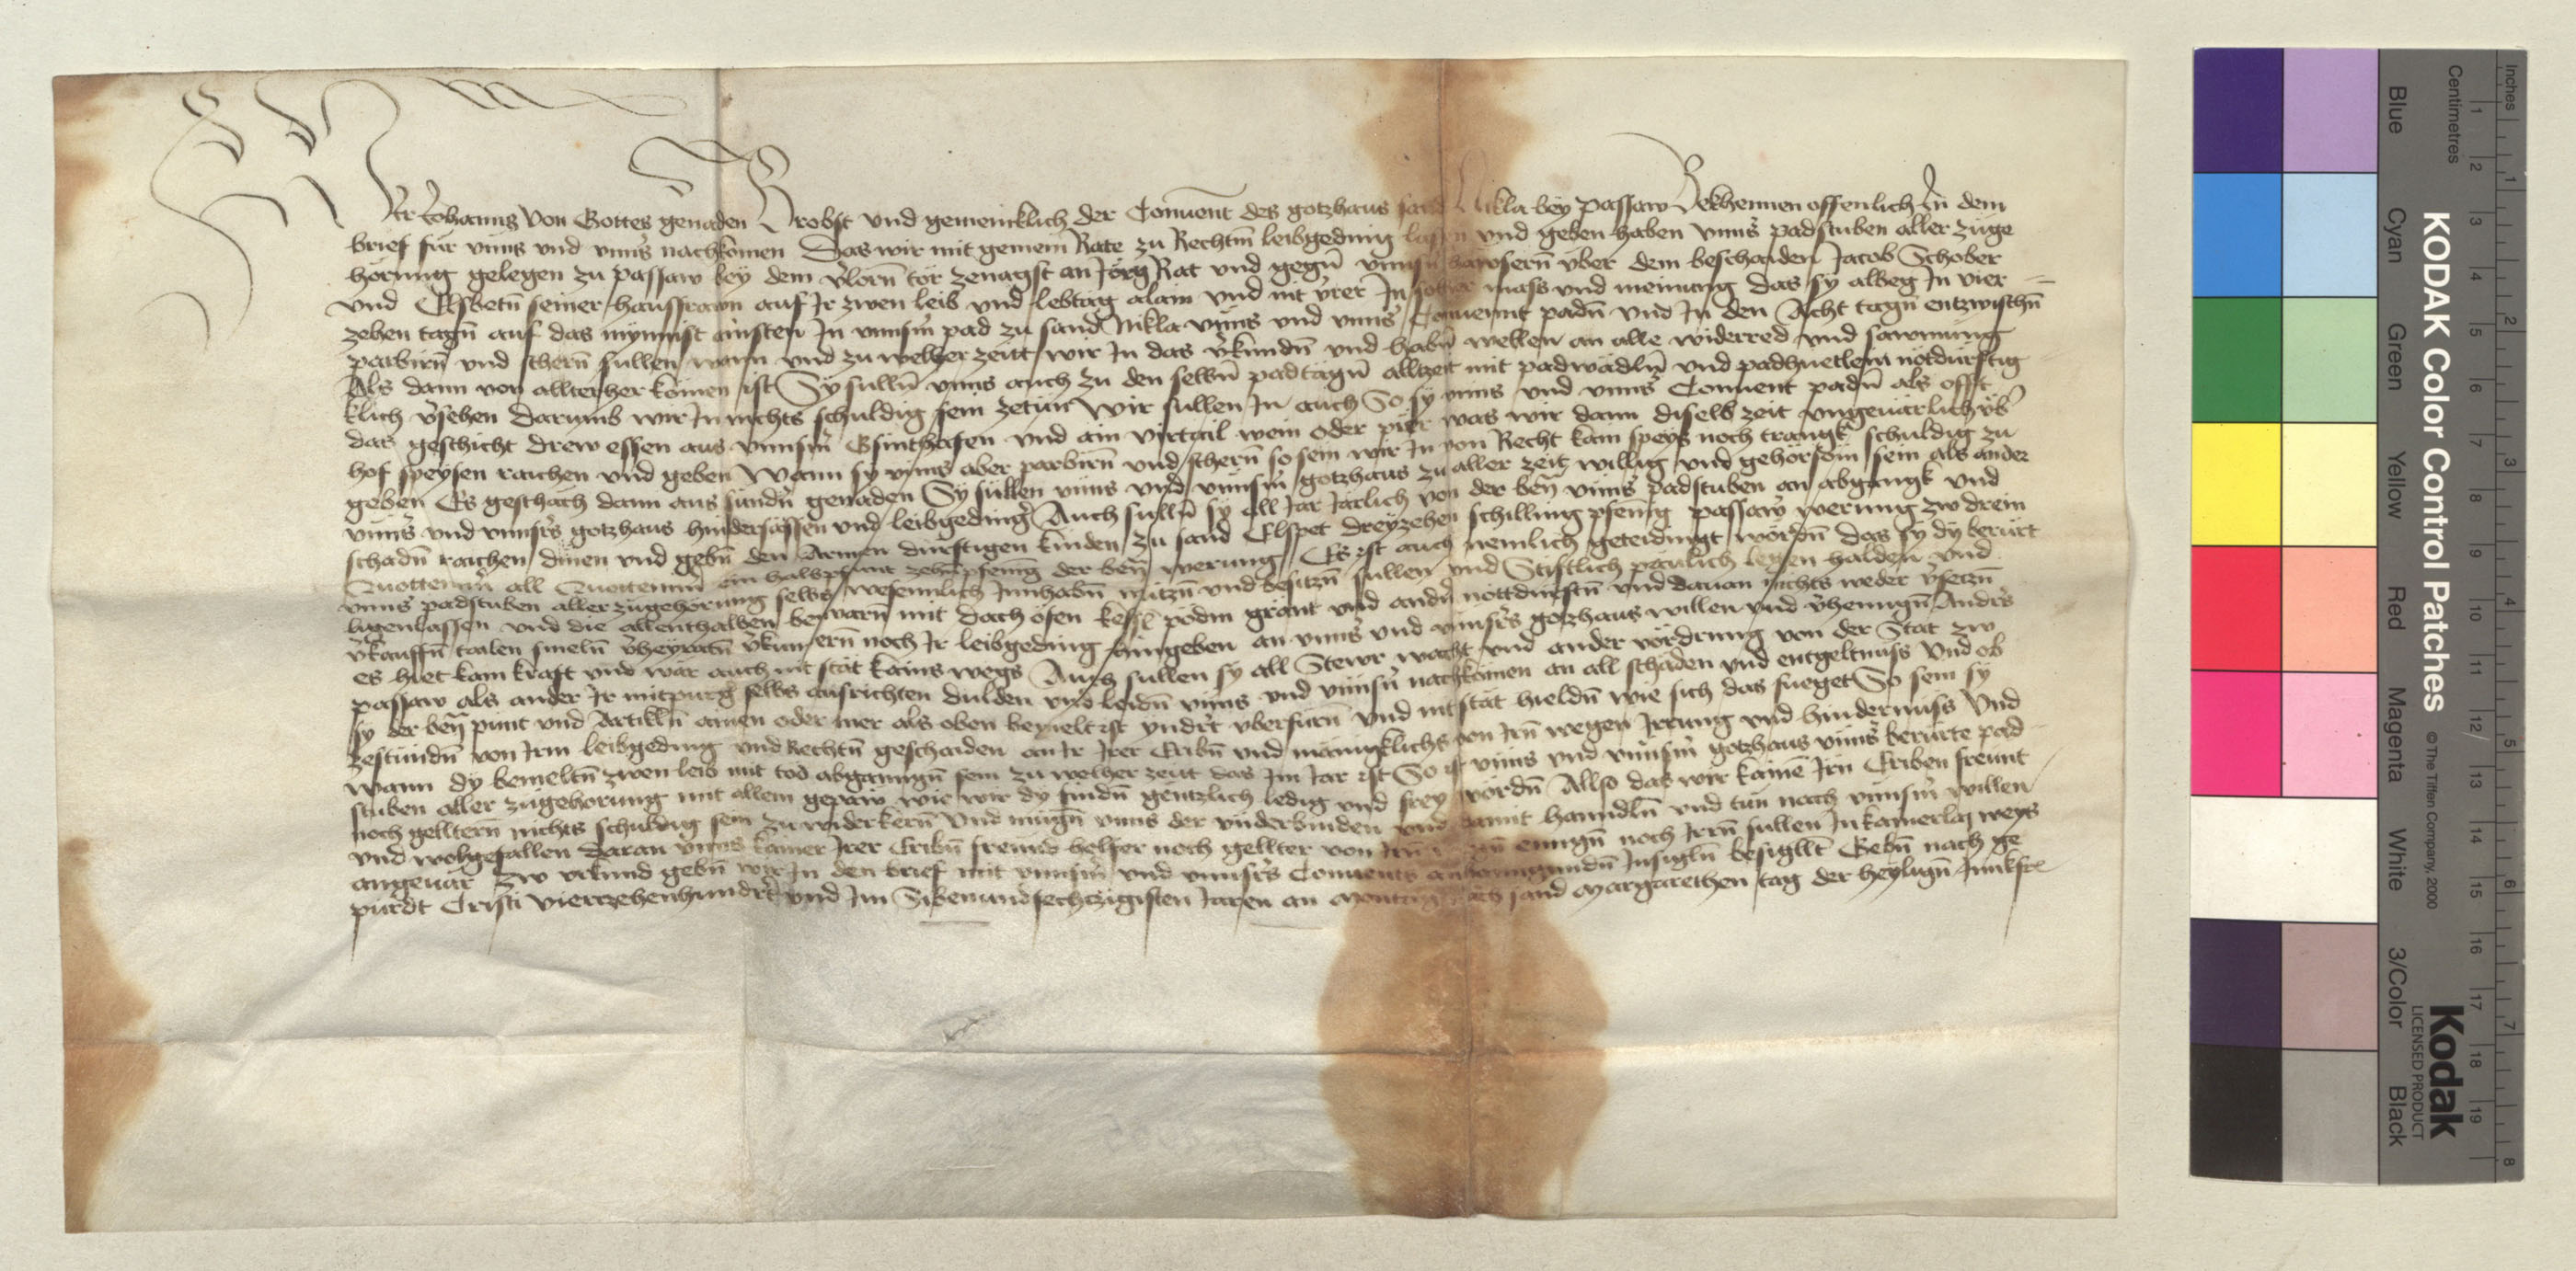 Wir Johanns Von Gottes genaden Brobst vnd gemeinklich der Conuent des gotzhaus sand Nikla bey passaw Bekhennen offenlich In dem
brief für vnns vnd vnns̉ nachkomen Das wir mit gemein̄ Rate zu Rechtm̄ leibgeding lassen vnd geben haben vnns̉ padstuben aller zuge
horung gelegen zu passaw bey dem v̉lorn̄ tor zenagst an Jorg Rat vnd gegn̄ vnnsn̉ hawsern̄ vber dem beschaiden Jacob Schober
vnd Elsbetn̄ seiner haussfrawn auf Jr zwen leib vnd lebtag alain vnd nit v̉rer In solher mass vnd meinung das sy albeg In vier
zehen tagn̄ auf das mynnist ainsten In vnnsm̉ pad zu sand Nikla vnns vnd vnns̉ Conuennt padn̄ vnd In den Acht tagn̄ entzwischn̄
parbirn̄ vnd schern̄ sullen wann vnd zu welher zeitt wir In das v̉kundn̄ vnd habn̄ wellen an alle widerred vnd sawmung
Als dann von allter her komen ist Sy sulln̄ vnns auch zu den selbn̄ padtagn̄ alltzeit mit padwadln̄ vnd padhuetlein notdurftig
klich v̉sehen darumb wir In nichts schuldig sein zetun Wir sullen In auch So sy vnns vnd vnns̉ Conuent padn̄ als offt
das geschicht drew essen aus vnnsm̉ Gsinthafen vnd ain virtail wein oder pier was wir dann diselb zeit vngeuarlich
hof speysen raichen vnd geben Wann sy vnns aber parbirn̄ vnd schern̄ so sein wir In von Recht kain speys noch trangk schuldig zu
geben Es geschach dann aus sundn̉ genaden Sy sullen vnns vnd vnnsm̉ gotzhaus zu aller zeit willig vnd gehorsom sein als ander
vnns̉ vnd vnnsr̉s gotzhaus hindersassen vnd leibgeding̉ Auch sulln̄ sy all Jar Jarlich von der ben̄ vnns̉ padstuben an abgangk vnd
schadn̄ raichen dinen vnd gebn̄ den Armen durftigen kinden zu sand Elspet dreyzehen schilling pfenig passaw̉ werung zw drein
Quottemm̉ all Quottemm̉ ein halbpfunt zehn̄ pfenig der ben̄ werung Es ist auch nemlich geteidingt wordn̄ das sy dy berurt
vnns̉ padstuben aller zugehorung selbs wesennlich Innhabn̄ nützn̄ vnd besitzn̄ sullen vnd Stiftlich paulich legen halden vnd
ligenlassen vnd die allenthalben bewarn̄ mit dach ofen kessl̄ podm grant vnd andn̉ nottdurftn̄ vnd dauan nichts weder v̉setzn̄
v̉kauffn̄ tailen smeln̄ v̉heyratn̄ v̉kumern̄ noch Jr leibgeding hingeben an vnns̉ vnd vnnsr̉s gotzhaus willen vnd v̉hennign̄ Andr̉s
es hiet kain kraft vnd war auch nit stat kains wegs Auch sullen sy all Stewr wacht vnd ander vordrung von der Stat zw
passaw als ander Jr mitpurg̉ selbs ausrichten dulden vnd leidn̄ vnns vnd vnnsn̉ nachkomen an all schaden vnd entgeltnuss Vnd ob
sy der ben̄ punt vnd Artikln̄ ainen oder mer als oben bemelt ist yndr̉t vberfurn̄ vnd nit stat hieldn̄ wie sich das fueget So sein sy
zestundn̄ von Irm leibgeding vnd Rechtn̄ geschaiden an Jr Irer Eribn̄ vnd mannigklichs von Irn̄ wegen Irrung vnd hindernuss Vnd
wann dy bemeltn̄ zwen leib mit tod abganngn̄ sein zu welher zeit das Im Jar ist So ist vnns vnd vnnsm̉ gotzhaus vnns̉ berurte pad
stuben aller zugehorung mit allem gepaw wie wir dy findn̄ gentzlich ledig vnd frey wordn̄ Allso das wir kainē Irn Eriben freunt
noch gelltern̄ nichts schuldig sein zu widerkern̄ Vnd mugn̄ vnns der vnderbinden vnd damit hanndln̄ vnd tun nach vnnsm̉ willen
vnd wolgefallen daran vnns kainer Irer Eribn̄ freund helfer noch gellter von Irn̄ wegn̄ enngn̄ noch Irrn̄ sullen In kainerlay weys
angeuar Zw vrkund gebn̄ wir In den brief mit vnnsm̉ vnd vnnsr̉s Conuents anhanngundn̄ Insigln̄ besigllt Gebn̄ nach ge
purdt Cristi Vierzehenhundr̉t vnd Im Sibenundsechtzigisten Jaren an Montag nach sand Margarethen tag der heylign̄ Junkfrē
KODAK Color Control Patches © The Tiffen Company, 2000
Kodak
LICENSED PRODUCT
Blue Cyan Green Yellow Red Magenta White 3/Color Black
Inches 1 2 3 4 5 6 7 8
Centimetres 1 2 3 4 5 6 7 8 9 10 11 12 13 14 15 16 17 18 19